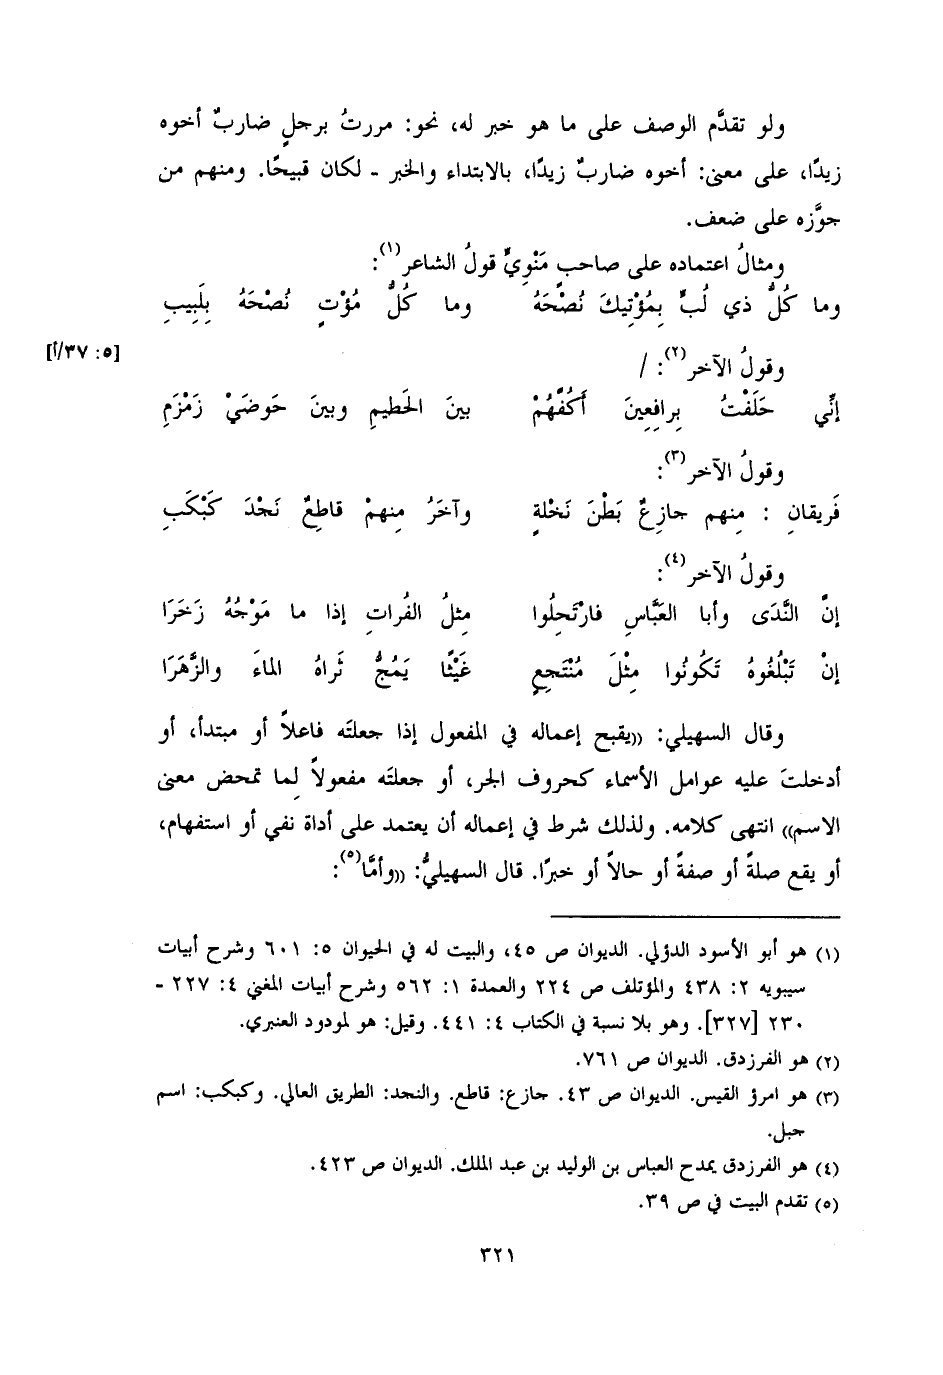 ولو تقدَّم الوصف على ما هو خبر له، نحو: مررتُ برجلٍ ضاربٌ أخوه
زيدًا، على معنى: أخوه ضاربٌ زيدًا، بالابتداء والخبر - لكان قبيحًا. ومنهم من
جوَّزه على ضعف.
ومثالُ اعتماده على صاحبٍ مَنْوِيٍّ قولُ الشاعر(١):
وما كُلُّ ذي لُبٍّ بِمُؤْتِيكَ نُصْحَهُ وما كُلُّ مُؤْتٍ نُصْحَهُ بِلَبِيبِ
وقولُ الآخر(٢): / [٥: ٣٧/أ]
إنِّي حَلَفْتُ بِرافِعِينَ أَكُفَّهُمْ بينَ الحَطيمِ وبينَ حَوضَيْ زَمْزَمِ
وقولُ الآخر(٣):
فَريقانِ : مِنهم جازِعٌ بَطْنَ نَخْلةٍ وآخَرُ مِنهمْ قاطِعٌ نَجْدَ كَبْكَبِ
وقولُ الآخر(٤):
إنَّ النَّدَى وأبا العَبَّاسِ فارْتَحِلُوا مِثلُ الفُراتِ إذا ما مَوْجُهُ زَخَرَا
إنْ تَبْلُغُوهُ تَكُونُوا مِثْلَ مُنْتَجِعٍ غَيْثًا يَمُجُّ ثَراهُ الماءَ والزَّهَرَا
وقال السهيلي: ((يقبح إعماله في المفعول إذا جعلتَه فاعلاً أو مبتدأ، أو
أدخلتَ عليه عوامل الأسماء كحروف الجر، أو جعلتَه مفعولاً لِما تمحض معنى
الاسم)) انتهى كلامه. ولذلك شرط في إعماله أن يعتمد على أداة نفي أو استفهام،
أو يقع صلةً أو صفةً أو حالاً أو خبرًا. قال السهيليُّ: ((وأمَّا(٥):
(١) هو أبو الأسود الدؤلي. الديوان ص ٤٥، والبيت له في الحيوان ٥: ٦٠١ وشرح أبيات
سيبويه ٢: ٤٣٨ والمؤتلف ص ٢٢٤ والعمدة ١: ٥٦٢ وشرح أبيات المغني ٤: ٢٢٧ -
٢٣٠ [٣٢٧]. وهو بلا نسبة في الكتاب ٤: ٤٤١. وقيل: هو لمودود العنبري.
(٢) هو الفرزدق. الديوان ص ٧٦١.
(٣) هو امرؤ القيس. الديوان ص ٤٣. جازع: قاطع. والنجد: الطريق العالي. وكبكب: اسم
جبل.
(٤) هو الفرزدق يمدح العباس بن الوليد بن عبد الملك. الديوان ص ٤٢٣.
(٥) تقدم البيت في ص ٣٩.
٣٢١